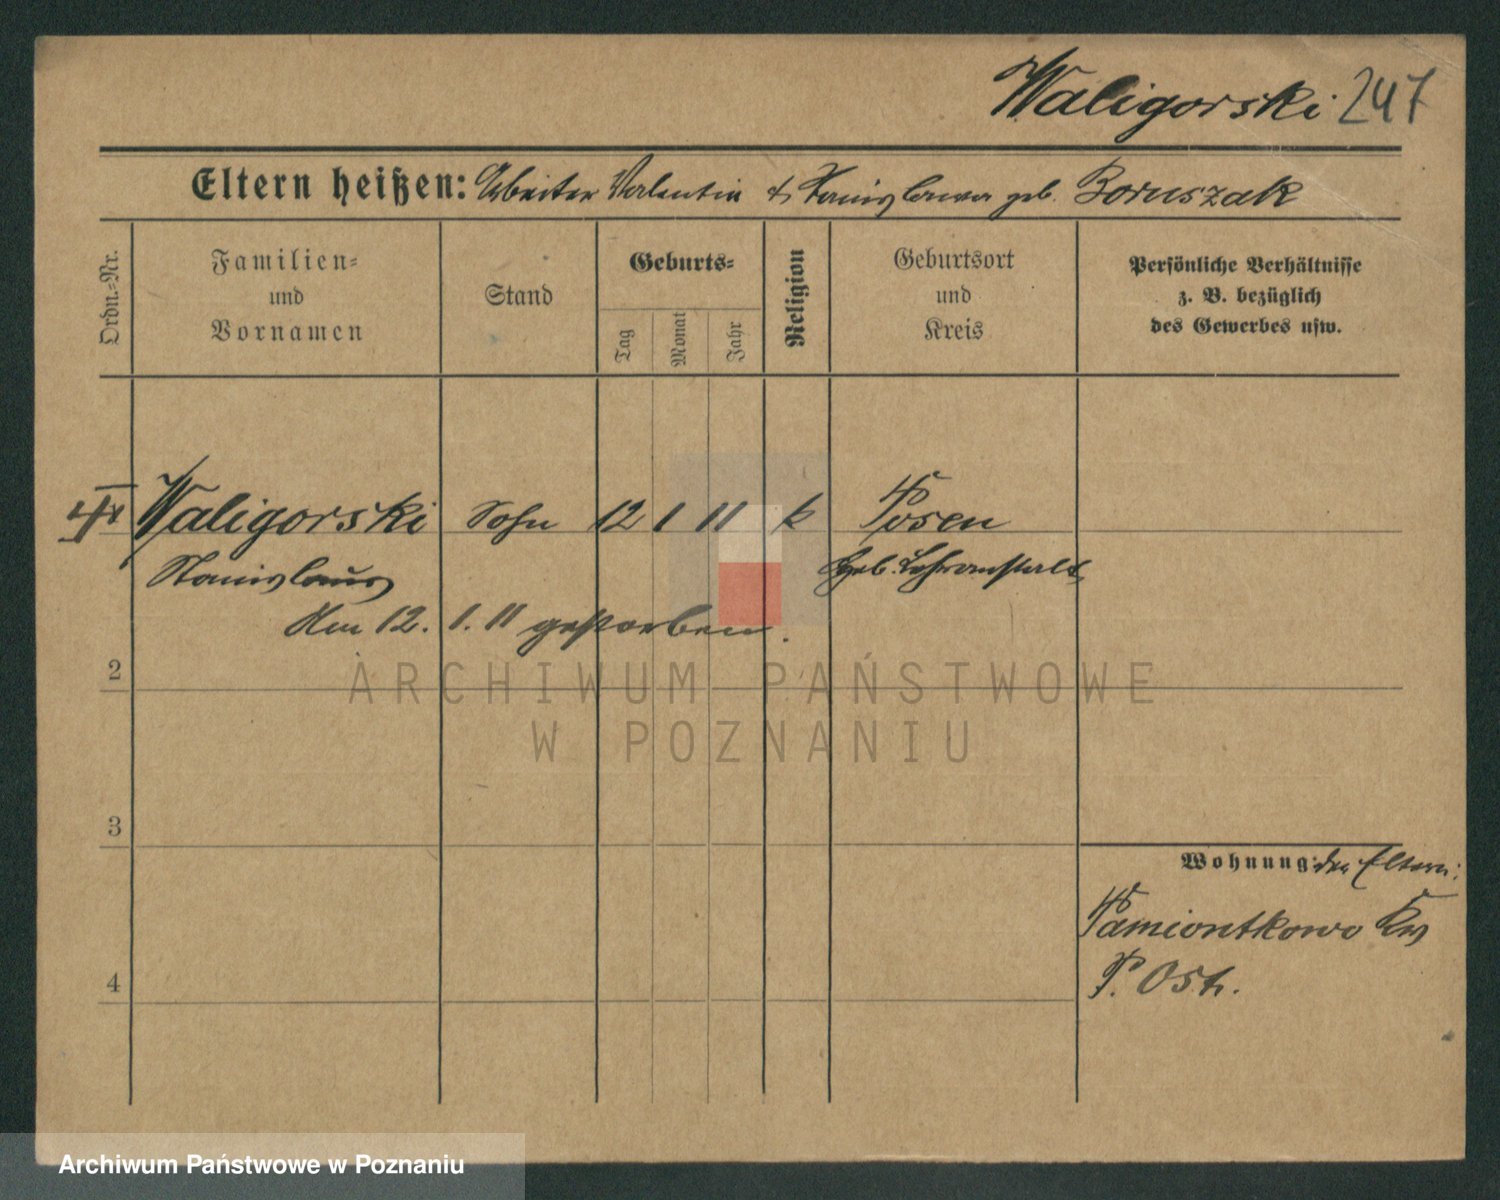 Waligorski 247
Eltern heißen: Arbeiter Valentin & Stanislawa geb. Boruszak
Ordn.-Nr.
Familien-
und
Vornamen
Stand
Geburts-
Tag
Monat
Jahr
Religion
Geburtsort
und
Kreis
Persönliche Verhältnisse
z. B. bezüglich
des Gewerbes usw.
Waligorski Sohn 12 1 11 k Posen
Stanislaus Heb. Lehranstalt
Am 12. 1. 11 gestorben.
2
ARCHIWUM PAŃSTWOWE
W POZNANIU
3
Wohnung der Eltern:
Pamiontkowo Krs
4
P. Ost.
Archiwum Państwowe w Poznaniu